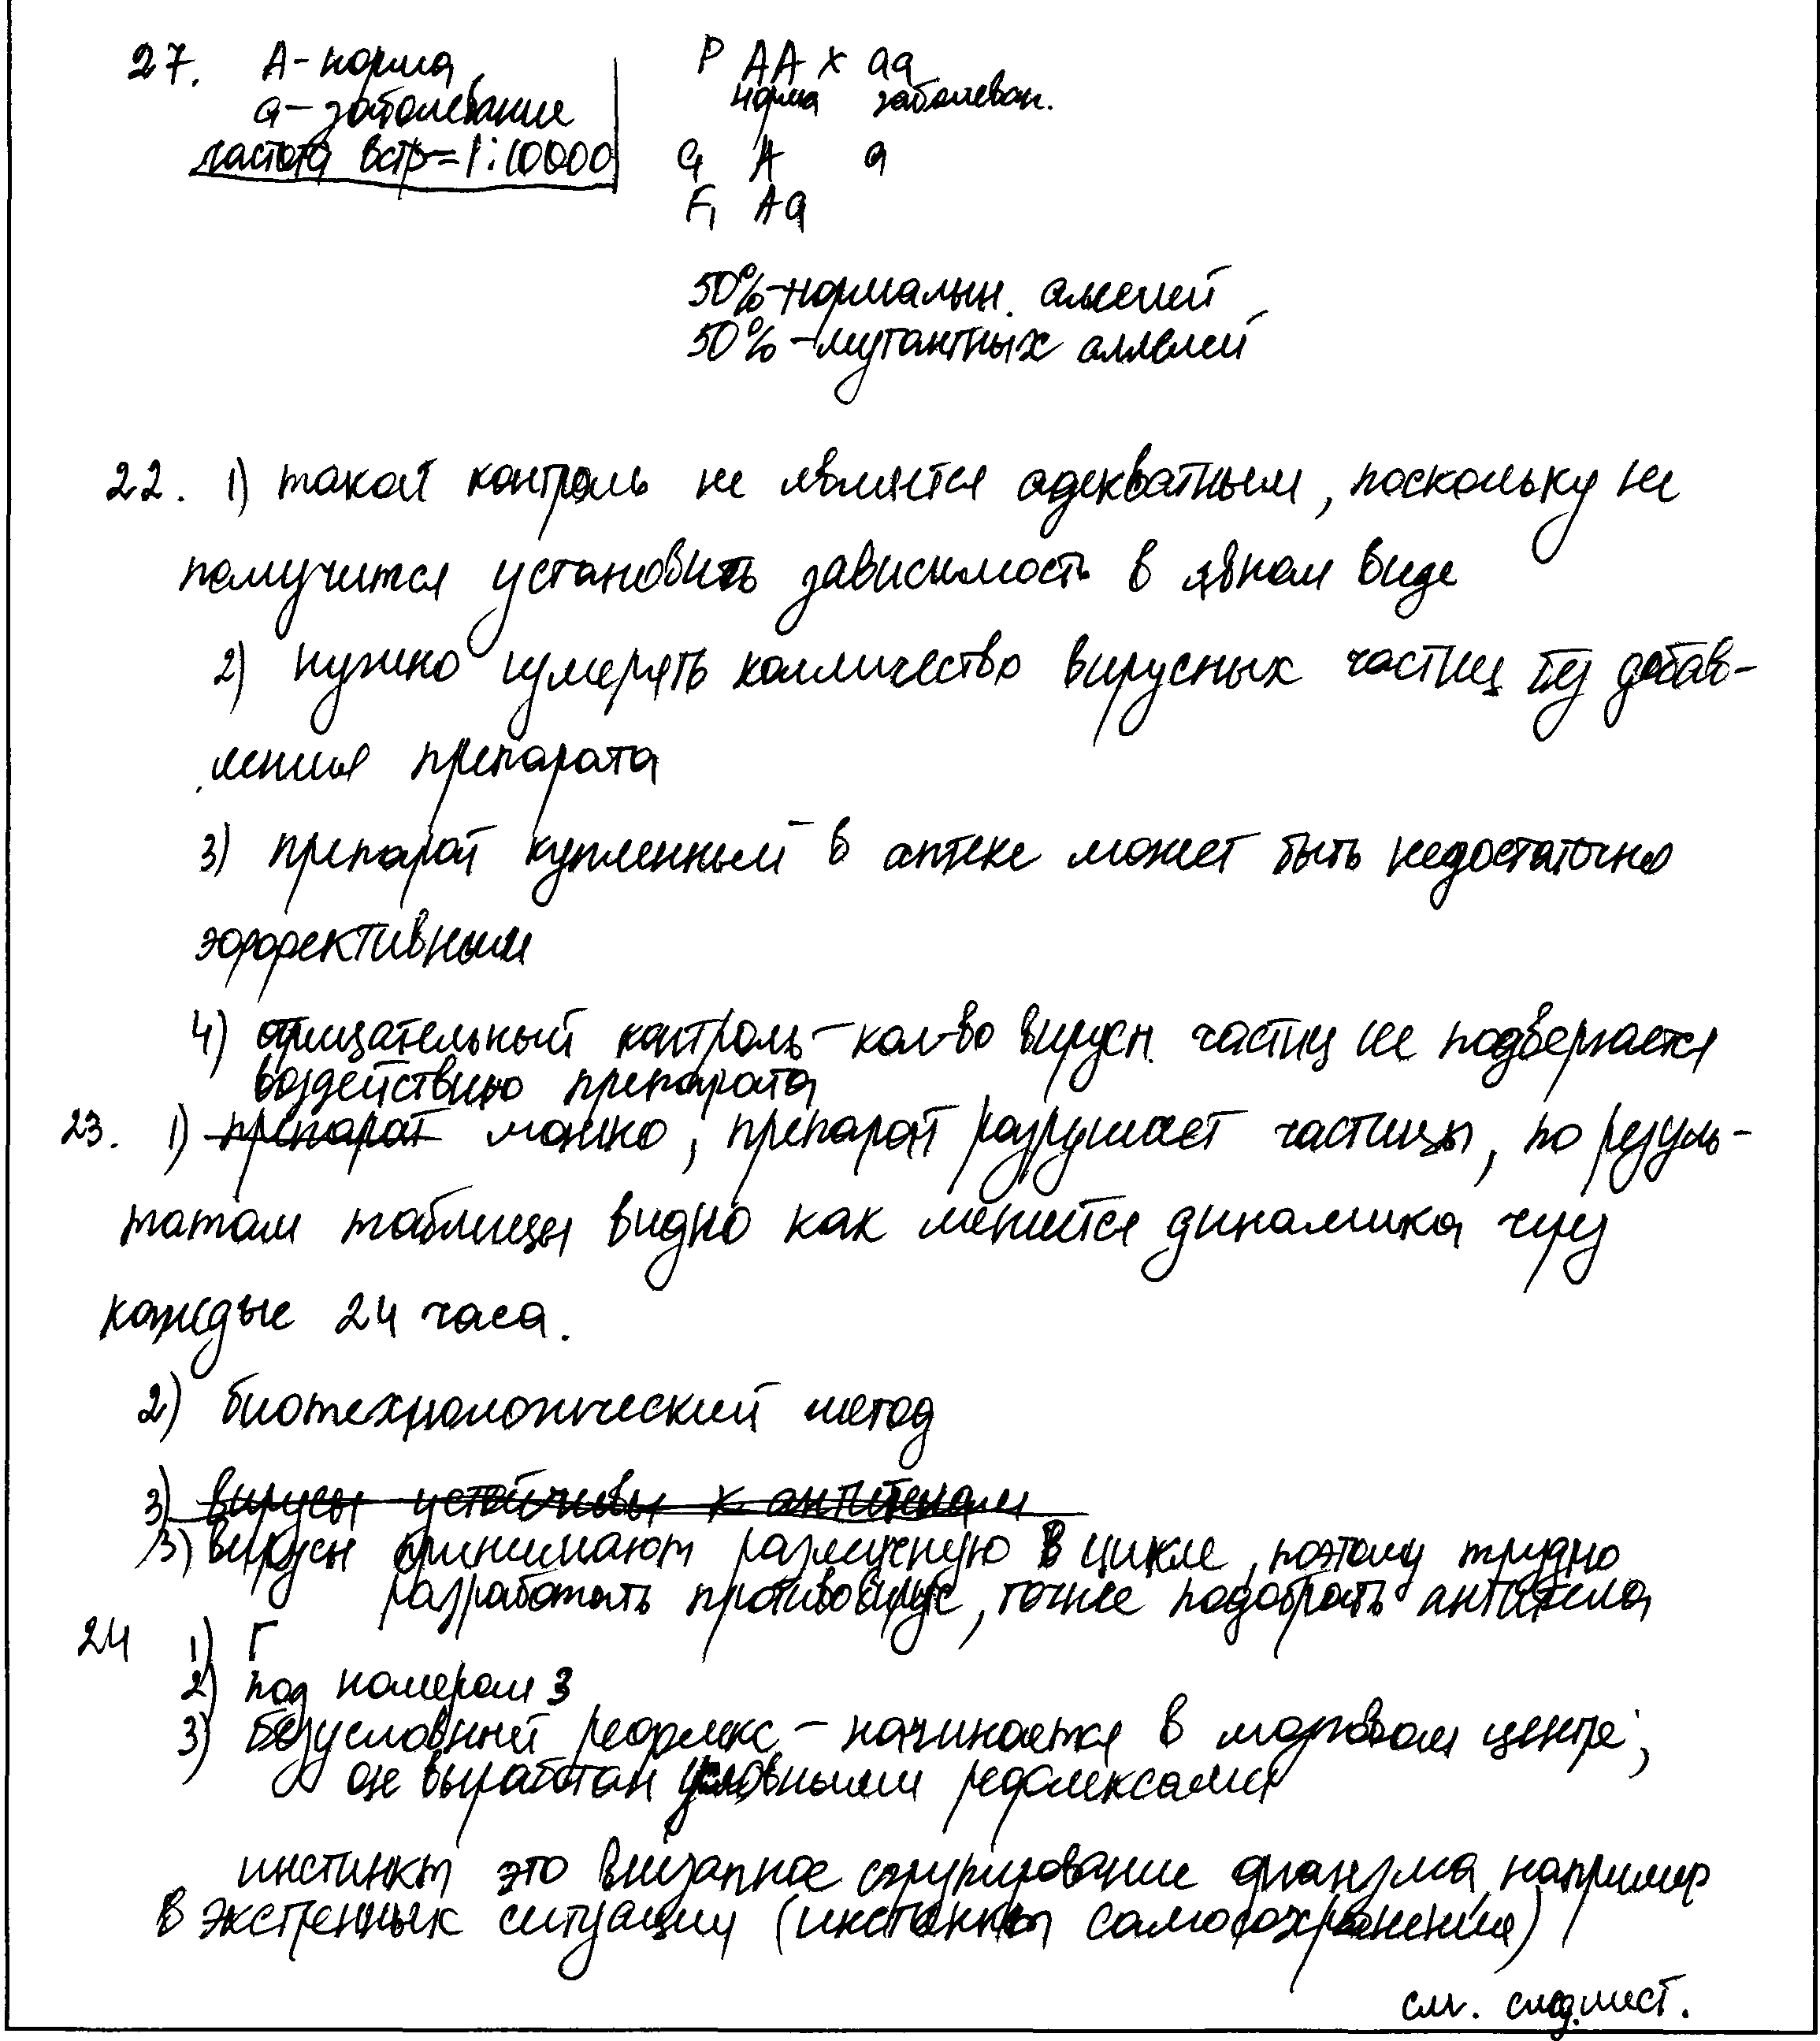 27. А - норма
а - заболевание
частота встр = 1:10000
P AA x aa
норма заболеван.
G A a
F1 Aa
50% - нормальн. аллелей
50% - мутантных аллелей
22. 1) такой контроль не является адекватным, поскольку не
получится установить зависимость в явном виде
2) нужно измерять колличество вирусных частиц без добав-
ления препарата
3) препарат купленный в аптеке может быть недостаточно
эффективным
4) отрицательный контроль - кол-во вирусн. частиц не подвергается
воздействию препарата
23. 1) препарат можно, препарат разрушает частицы, по резуль-
татам таблицы видно как меняется динамика через
каждые 24 часа.
2) биотехнологический метод
3) вирусы устойчивы к антигенам
3) вирусы принимают различную в цикле, поэтому трудно
разработать противовирус, точнее подобрать антитела
24 1) Г
2) под номером 3
3) безусловный рефлекс - начинается в мозговом центре,
он выработан условными рефлексами
инстинкт это внезапное сгрупирование организма, например
в экстренных ситуации (инстинкты самосохранения)
см. след. лист.